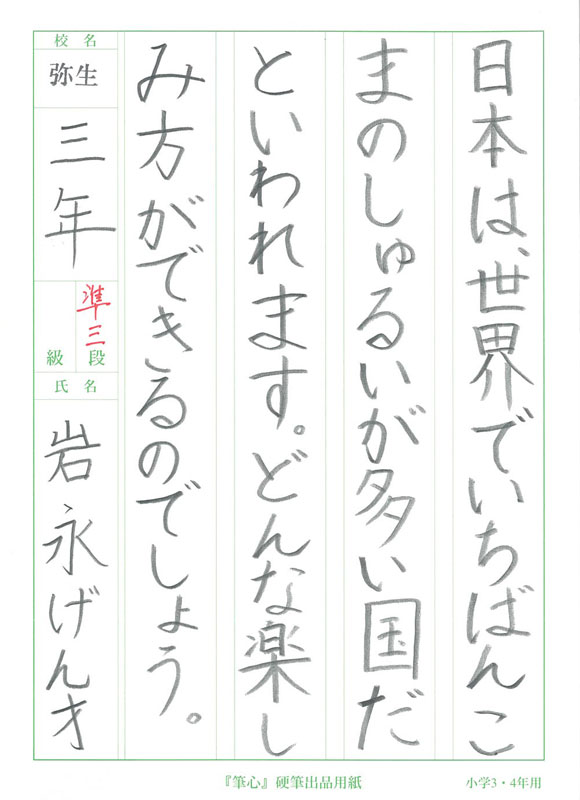 日本は、世界でいちばんこ
まのしゅるいが多い国だ
といわれます。どんな楽し
み方ができるのでしょう。
校名
弥生
三年
準三
段
級
氏名
岩永げん才
『筆心』硬筆出品用紙
小学3・4年用